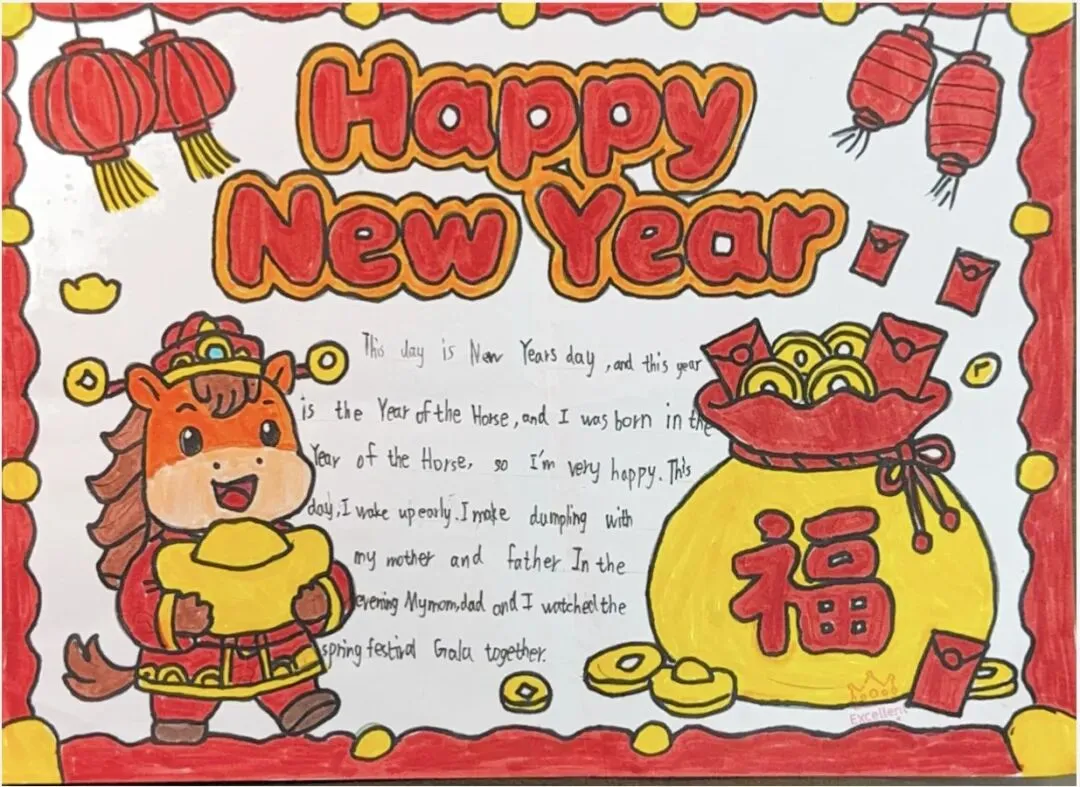 Happy
New Year
This day is New Years day, and this year
is the Year of the Horse, and I was born in the
Year of the Horse, so I'm very happy. This
day, I wake up early. I make dumpling with
my mother and father In the
evening My mom, dad and I watched the
spring festival Gala together.
福
Excellent